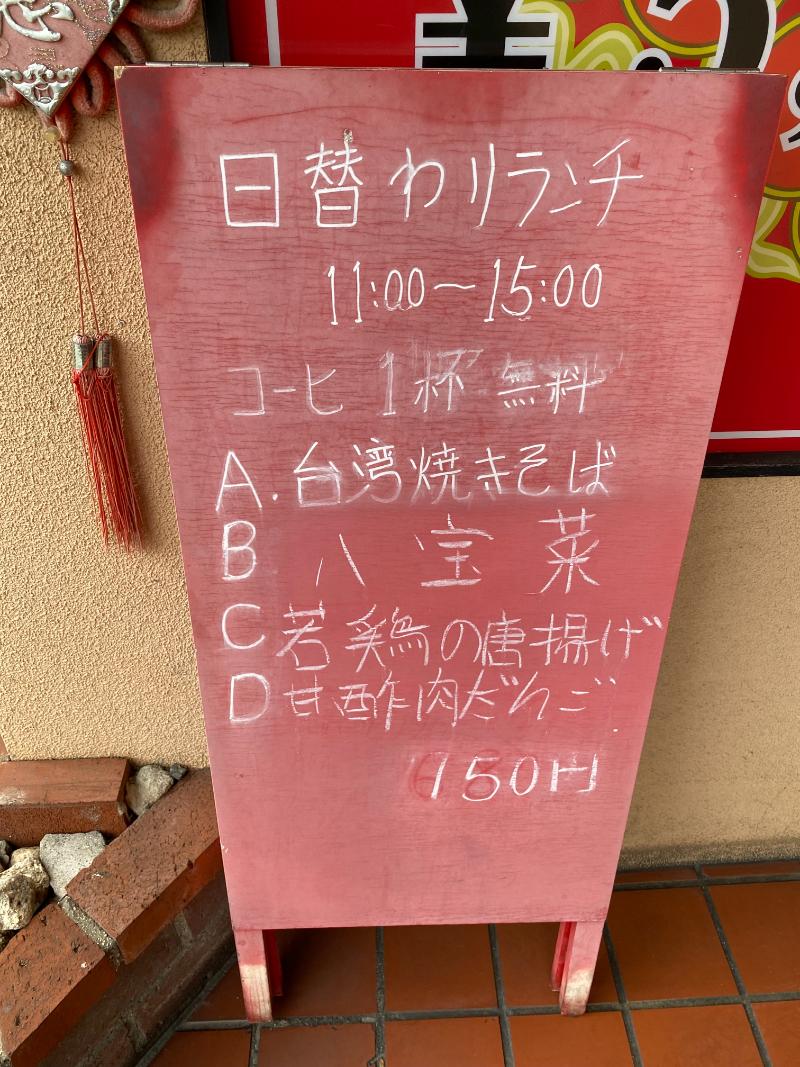 日替わりランチ
11:00〜15:00
コーヒ 1杯 無料
A.台湾焼きそば
B 八宝菜
C 若鶏の唐揚げ
D 甘酢肉だんご
750円